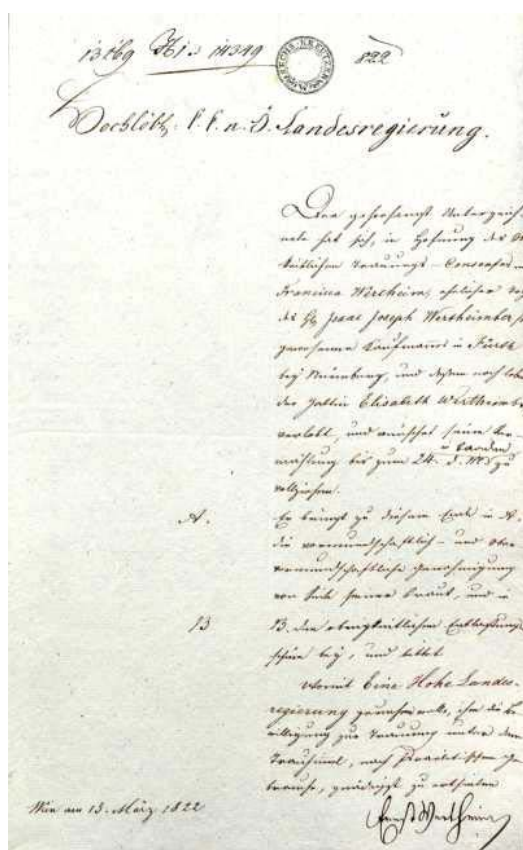 13469 His 14349 822
SECHS KREUTZER
Hochlöbl. k. k. n. ö. Landesregierung.
Der gehorsamst Unterzeich-
nete hat sich, in Hofnung des
keitlichen Trauungs-Consenses
Francisca Wertheim, ehelicher
des H Isaac Joseph Wertheimber
gewesenen Kaufmanns in Fürth
bey Nürnberg, und dessen noch lebe
der Gattin Elisabeth Wertheimb
verlobt, und wünschet seine Ver-
mählung bis zum 24. d. Mts zu
vollziehen.
A. Er bringt zu diesem Ende in A.
die vormundschaftlich- und ober-
vormundschaftliche Genehmigung
von Seite seiner Braut, und in
B B. den obrigkeitlichen Entlassungs
schein bey, und bittet
Womit Eine Hohe Landes-
regierung geruhen wolle, ihm die Be
willigung zur Trauung unter dem
Trauhimel, nach Israelitischem Ge
brauche, gnädigst zu ertheilen
Wien am 13. März 1822
Ernst Wertheim